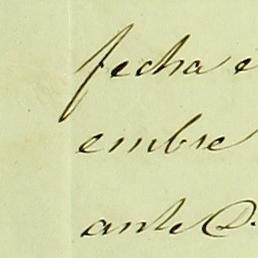 fecha e
embre
ante D.